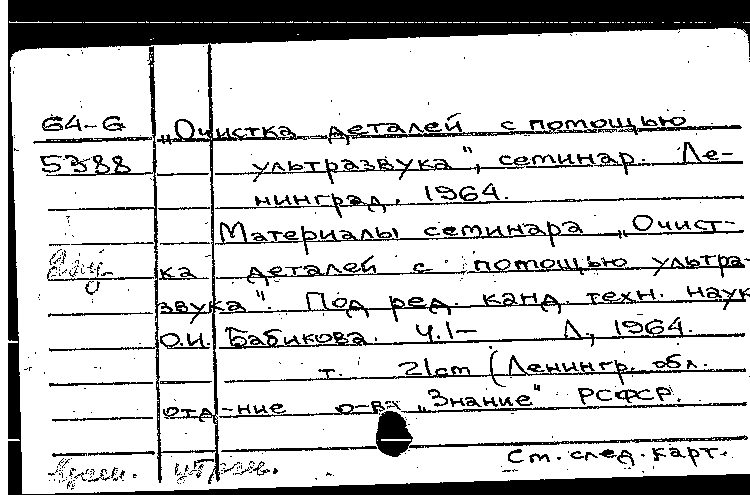 64-6 „Очистка деталей с помощью
5388 ультразвука", семинар. Ле-
нинград. 1964.
Материалы семинара „Очист-
ка деталей с помощью ультра-
звука". Под ред. канд. техн. наук
О.И. Бабикова. Ч.1- Л., 1964.
т. 21cm (Ленингр. обл.
отд-ние о-ва „Знание" РСФСР.
См. след. карт.